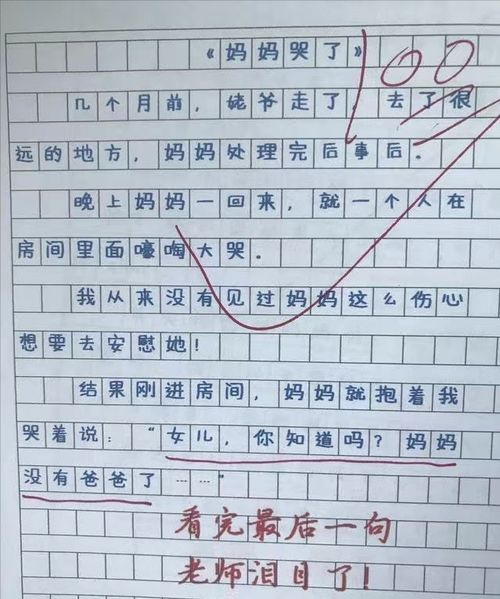 《妈妈哭了》 100
几个月前，姥爷走了，去了很
远的地方，妈妈处理完后事后。
晚上妈妈一回来，就一个人在
房间里面嚎啕大哭。
我从来没有见过妈妈这么伤心
想要去安慰她！
结果刚进房间，妈妈就抱着我
哭着说："女儿，你知道吗？妈妈
没有爸爸了……"
看完最后一句
老师泪目了！